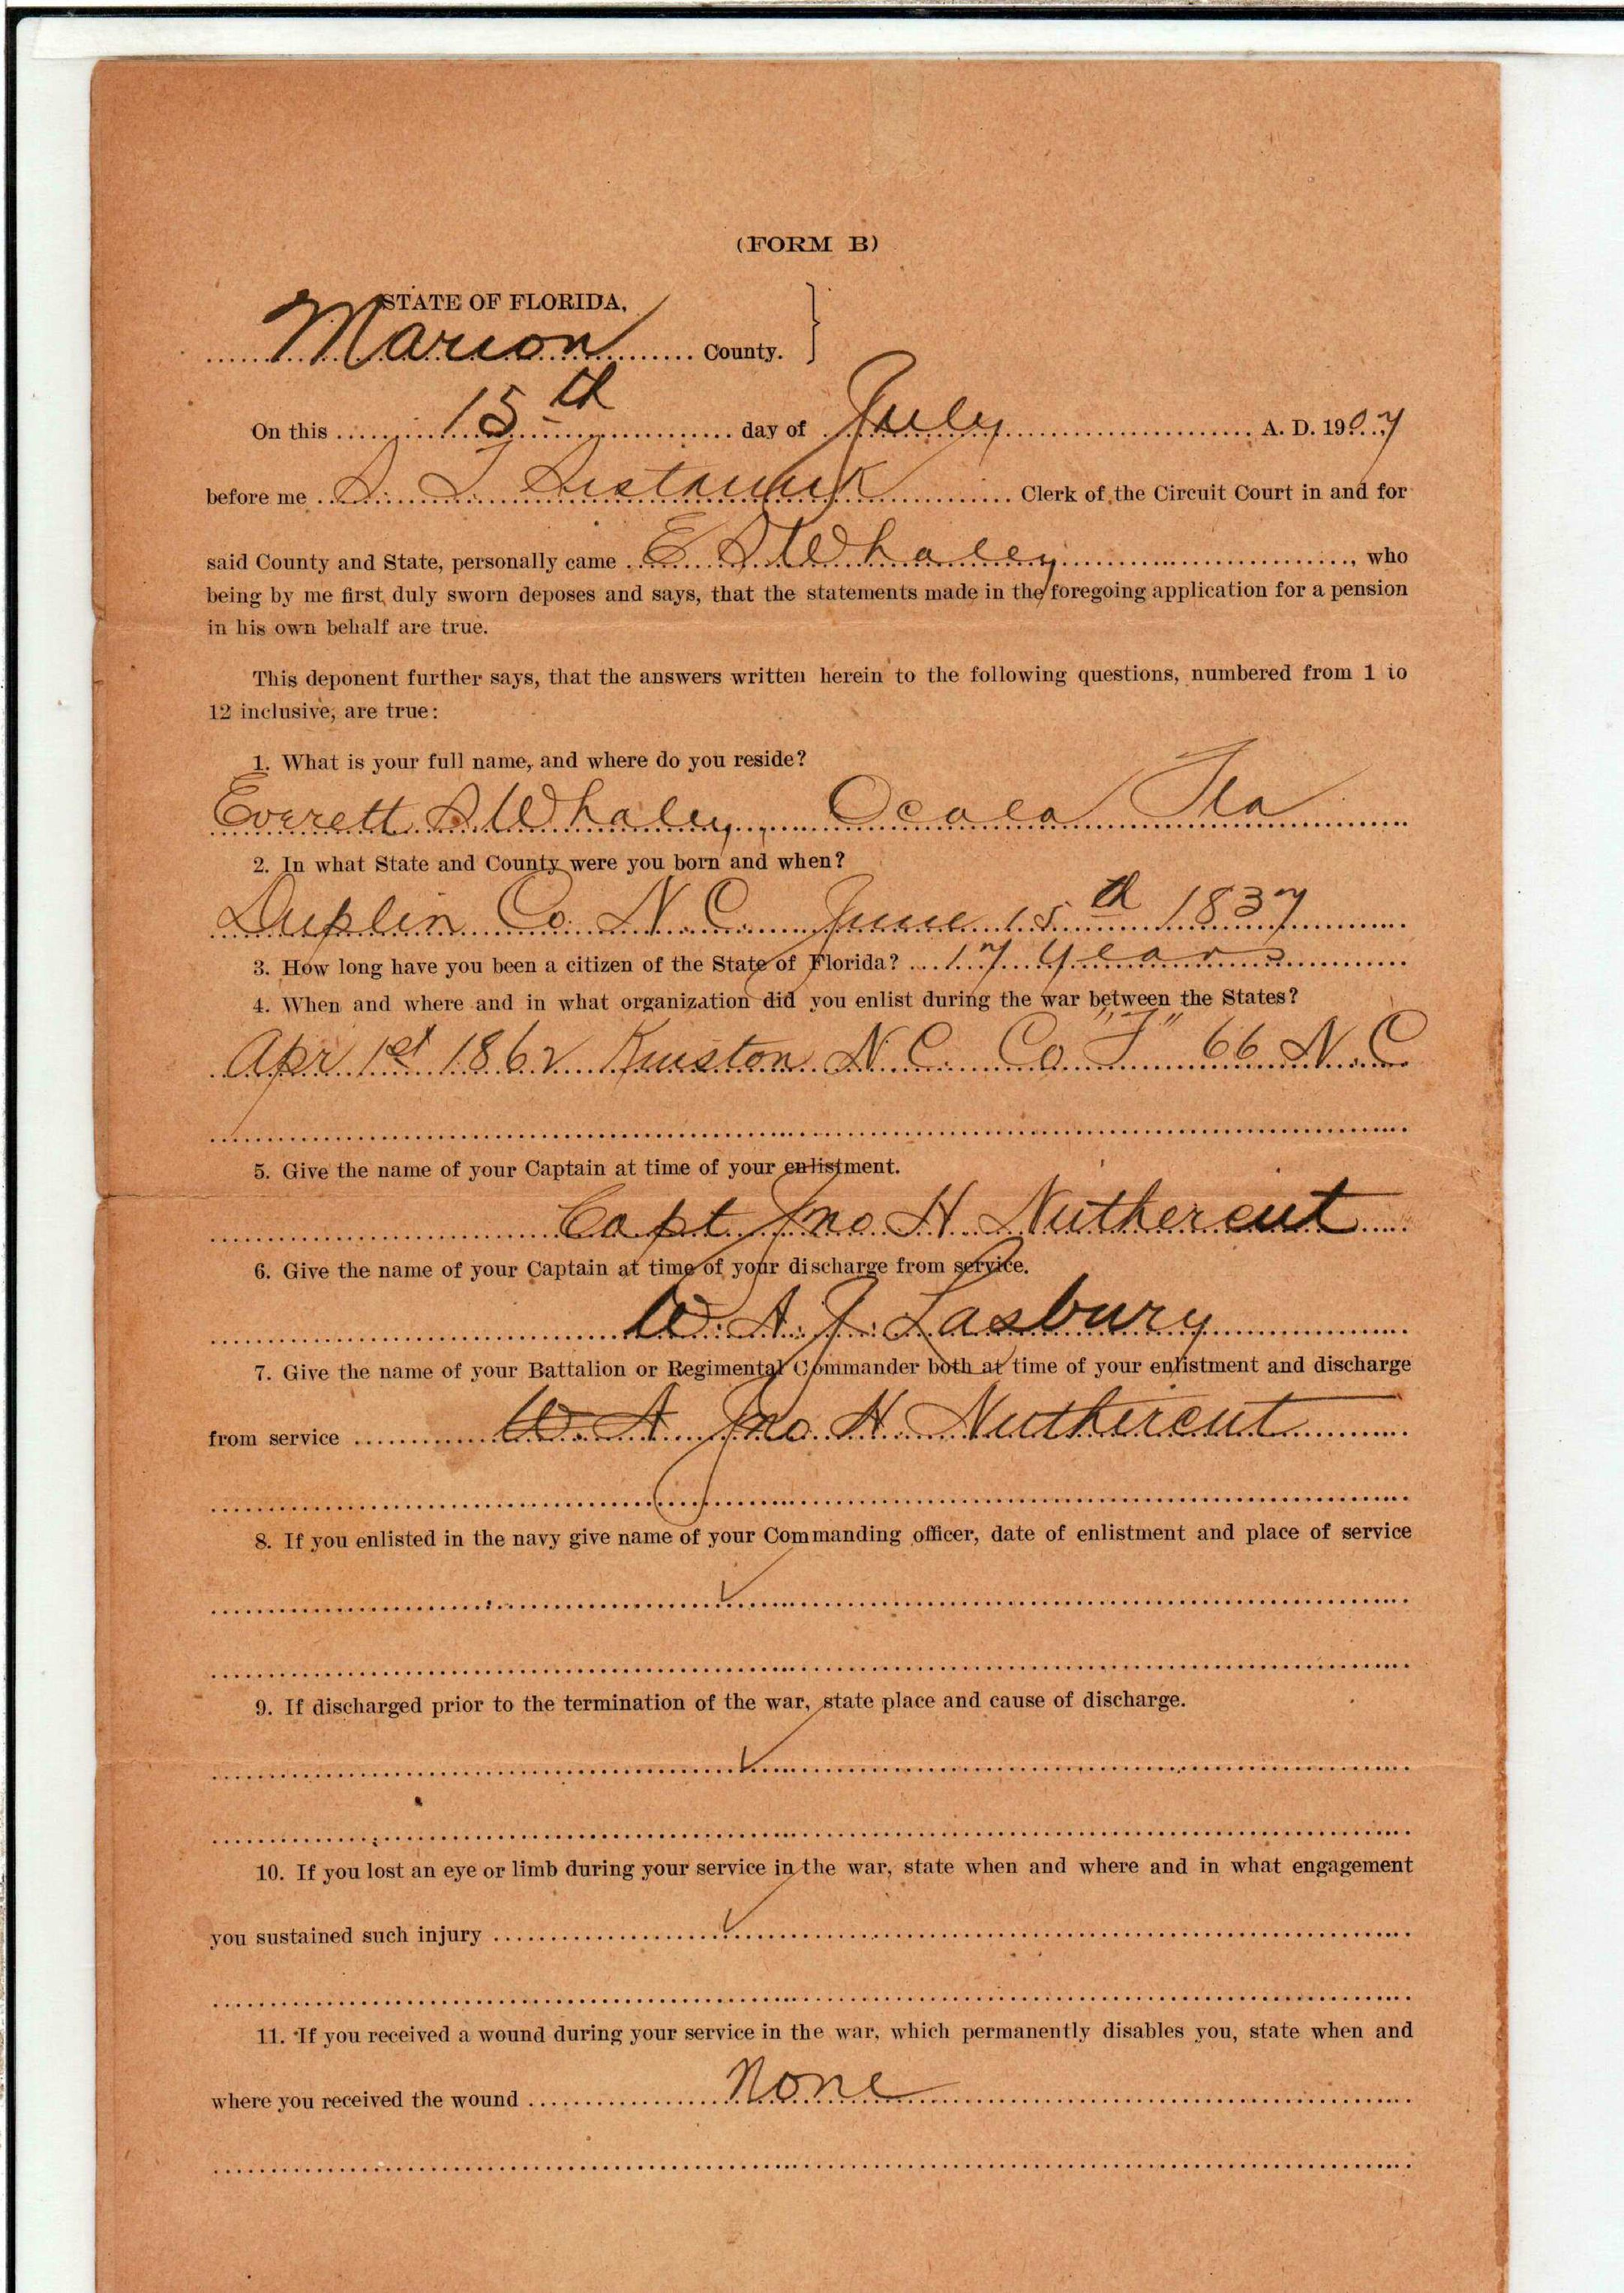 (FORM B)
STATE OF FLORIDA,
Marion County.
On this 15th day of July A. D. 1907
before me S. T. Sistrunk Clerk of the Circuit Court in and for
said County and State, personally came E S Whaley, who
being by me first duly sworn deposes and says, that the statements made in the foregoing application for a pension
in his own behalf are true.
This deponent further says, that the answers written herein to the following questions, numbered from 1 to
12 inclusive, are true:
1. What is your full name, and where do you reside?
Everett S Whaley, Ocala Fla
2. In what State and County were you born and when?
Duplin Co. N. C. June 15th 1837
3. How long have you been a citizen of the State of Florida? 17 Years
4. When and where and in what organization did you enlist during the war between the States?
Apr. 1st 1862 Kinston N. C. Co "F" 66 N. C
5. Give the name of your Captain at time of your enlistment.
Capt Jno. H. Nuthercut
6. Give the name of your Captain at time of your discharge from service.
W. A. J. Lasbury
7. Give the name of your Battalion or Regimental Commander both at time of your enlistment and discharge
from service W. A. Jno. H. Nuthercut
8. If you enlisted in the navy give name of your Commanding officer, date of enlistment and place of service
9. If discharged prior to the termination of the war, state place and cause of discharge.
10. If you lost an eye or limb during your service in the war, state when and where and in what engagement
you sustained such injury
11. If you received a wound during your service in the war, which permanently disables you, state when and
where you received the wound None